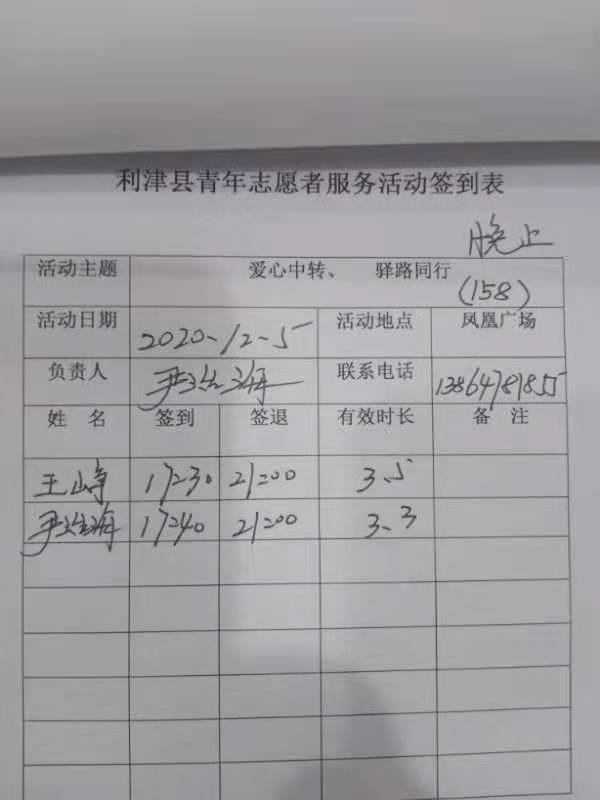 利津县青年志愿者服务活动签到表
晚上
活动主题 爱心中转、 驿路同行
(158)
活动日期 2020-12-5 活动地点 凤凰广场
负责人 联系电话 13864787855
姓名 签到 签退 有效时长 备注
王峥 17:30 21:00 3.5
17:40 21:00 3.3